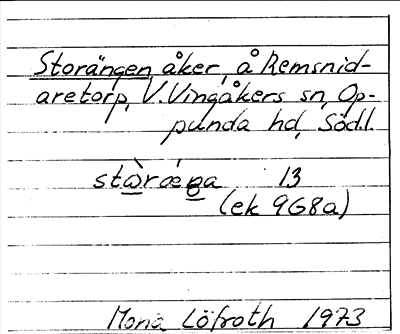 Storängen, åker, å Remsnid-
aretorp, V. Vingåkers sn, Op-
punda hd, Södl.
stὼræ´ŋa 13
(ek 9G8a)
Mona Löfroth 1973